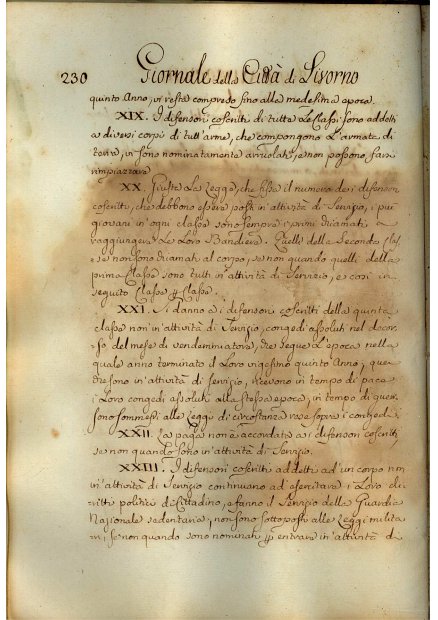 230 Giornale della Città di Livorno
quinto Anno, vi resta compreso fino alla medesima epoca.
XIX. I difensori coscritti di tutte le Classi sono addetti
a diversi corpi di tutt'arme, che compongono l'armata di
terra, vi sono nominatamente arruolati, e non possono farsi
rimpiazzare
XX. Giusta la Legge, che fissa il numero dei difensori
coscritti, che debbono essere posti in attività di Servizio, i più
giovani in ogni classe sono sempre i primi chiamati a
raggiungere le Loro Bandiere. Quelli della Seconda Clas-
se non sono chiamati al corpo, se non quando quelli della
prima Classe sono tutti in attività di Servizio, e così in
seguito Classe p Classe.
XXI. Si danno a i difensori coscritti della quinta
classe non in'attività di Servizio, congedi assoluti nel decor-
so del mese di vendemmiatore, che segue l'epoca nella
quale anno terminato il Loro vigesimo quinto Anno; quei
che sono in'attività di servizio, ricevono in tempo di pace
i Loro congedi assoluti alla stessa epoca, in tempo di guerra
sono sommessi alle Leggi di circostanza rese sopra i congedi.
XXII. La paga non è accordata a i difensori coscritti
se non quando sono in'attività di Servizio.
XXIII. I difensori coscritti addetti ad'un corpo non
in'attività di Servizio continuano ad esercitare i Loro di-
ritti politici di Cittadino, e fanno il Servizio della Guardia
Nazionale sedentaria, non sono sottoposti alle Leggi milita-
ri, se non quando sono nominati p entrare in'attività di